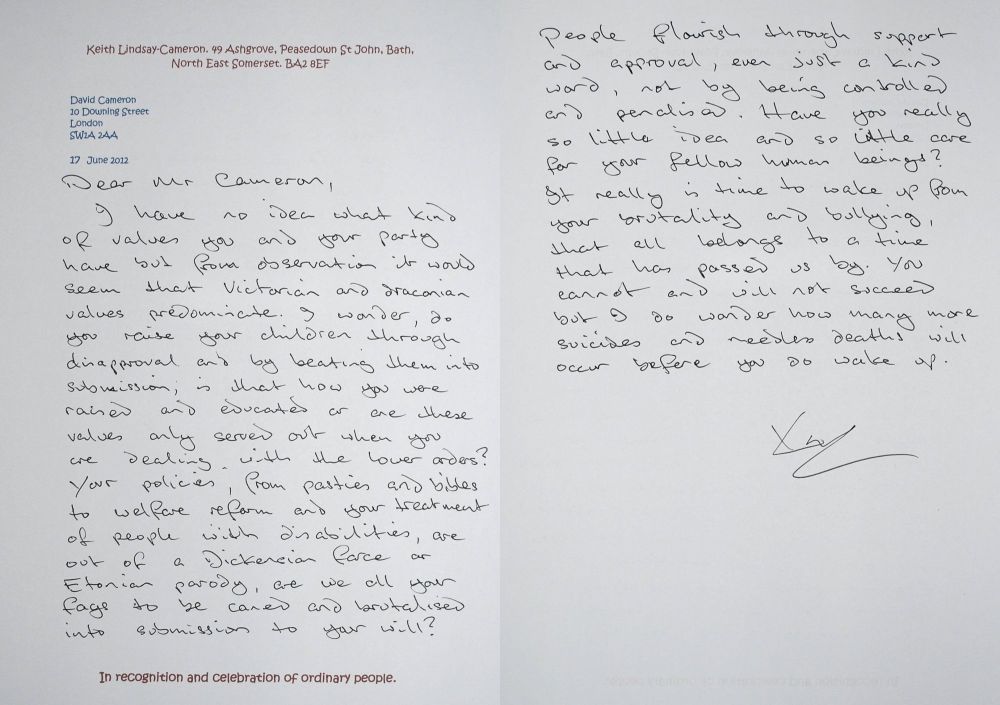 Keith Lindsay-Cameron. 49 Ashgrove, Peasedown St John, Bath,
North East Somerset. BA2 8EF
David Cameron
10 Downing Street
London
SW1A 2AA
17 June 2012
Dear Mr Cameron,
I have no idea what kind
of values you and your party
have but from observation it would
seem that Victorian and draconian
values predominate. I wonder, do
you raise your children through
disapproval and by beating them into
submission; is that how you were
raised and educated or are these
values only served out when you
are dealing with the lower orders?
Your policies, from pasties and bibles
to welfare reform and your treatment
of people with disabilities, are
out of a Dickensian farce or
Etonian parody, are we all your
fags to be caned and brutalised
into submission to your will?
In recognition and celebration of ordinary people.
People flourish through support
and approval, even just a kind
word, not by being controlled
and penalised. Have you really
so little idea and so little care
for your fellow human beings?
It really is time to wake up from
your brutality and bullying,
that all belongs to a time
that has passed us by. You
cannot and will not succeed
but I do wonder how many more
suicides and needless deaths will
occur before you do wake up.